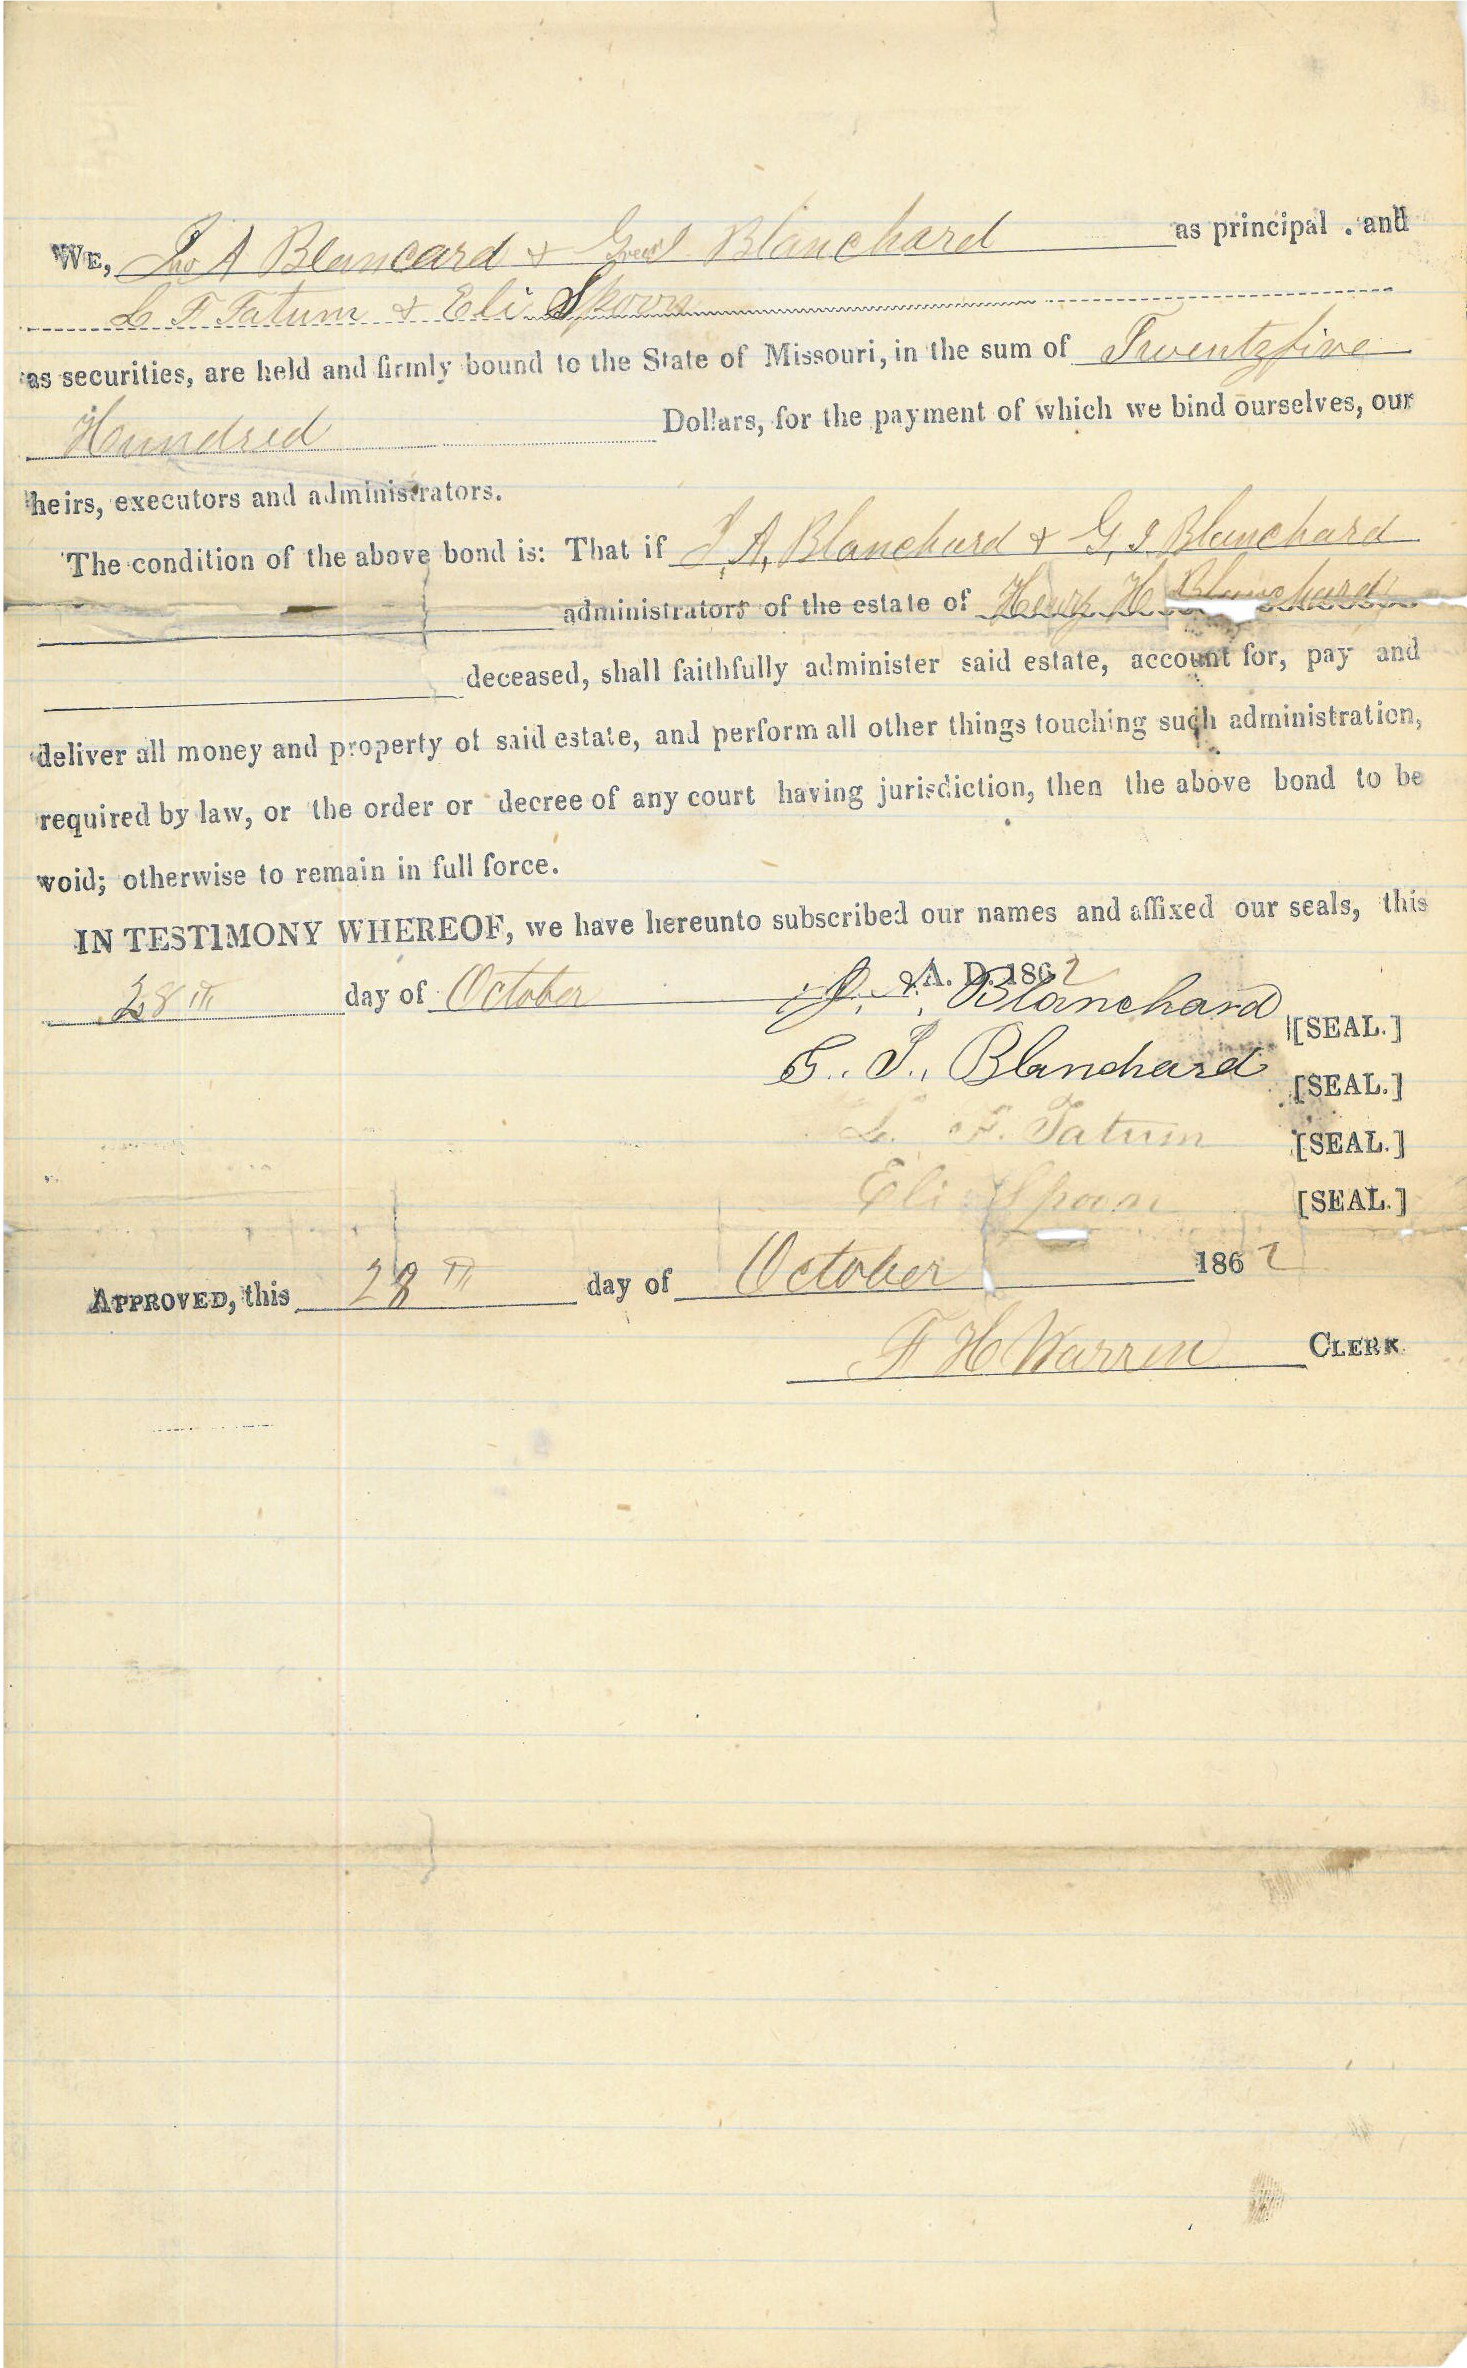 WE, Jno A Blancard & Green I Blanchard as principal . and
L F Tatum & Eli Spoon
as securities, are held and firmly bound to the State of Missouri, in the sum of Twentyfive
Hundred Dollars, for the payment of which we bind ourselves, our
heirs, executors and administrators.
The condition of the above bond is: That if J, A, Blanchard & G, I Blanchard
administrators of the estate of Henry H Blanchard
deceased, shall faithfully administer said estate, account for, pay and
deliver all money and property of said estate, and perform all other things touching such administration,
required by law, or the order or decree of any court having jurisdiction, then the above bond to be
void; otherwise to remain in full force.
IN TESTIMONY WHEREOF, we have hereunto subscribed our names and affixed our seals, this
28th day of October A. D. 1862
J. A. Blanchard [SEAL.]
G. I. Blanchard [SEAL.]
L. F. Tatum [SEAL.]
Eli Spoon [SEAL.]
APPROVED, this 28th day of October 1862
F H Warren CLERK